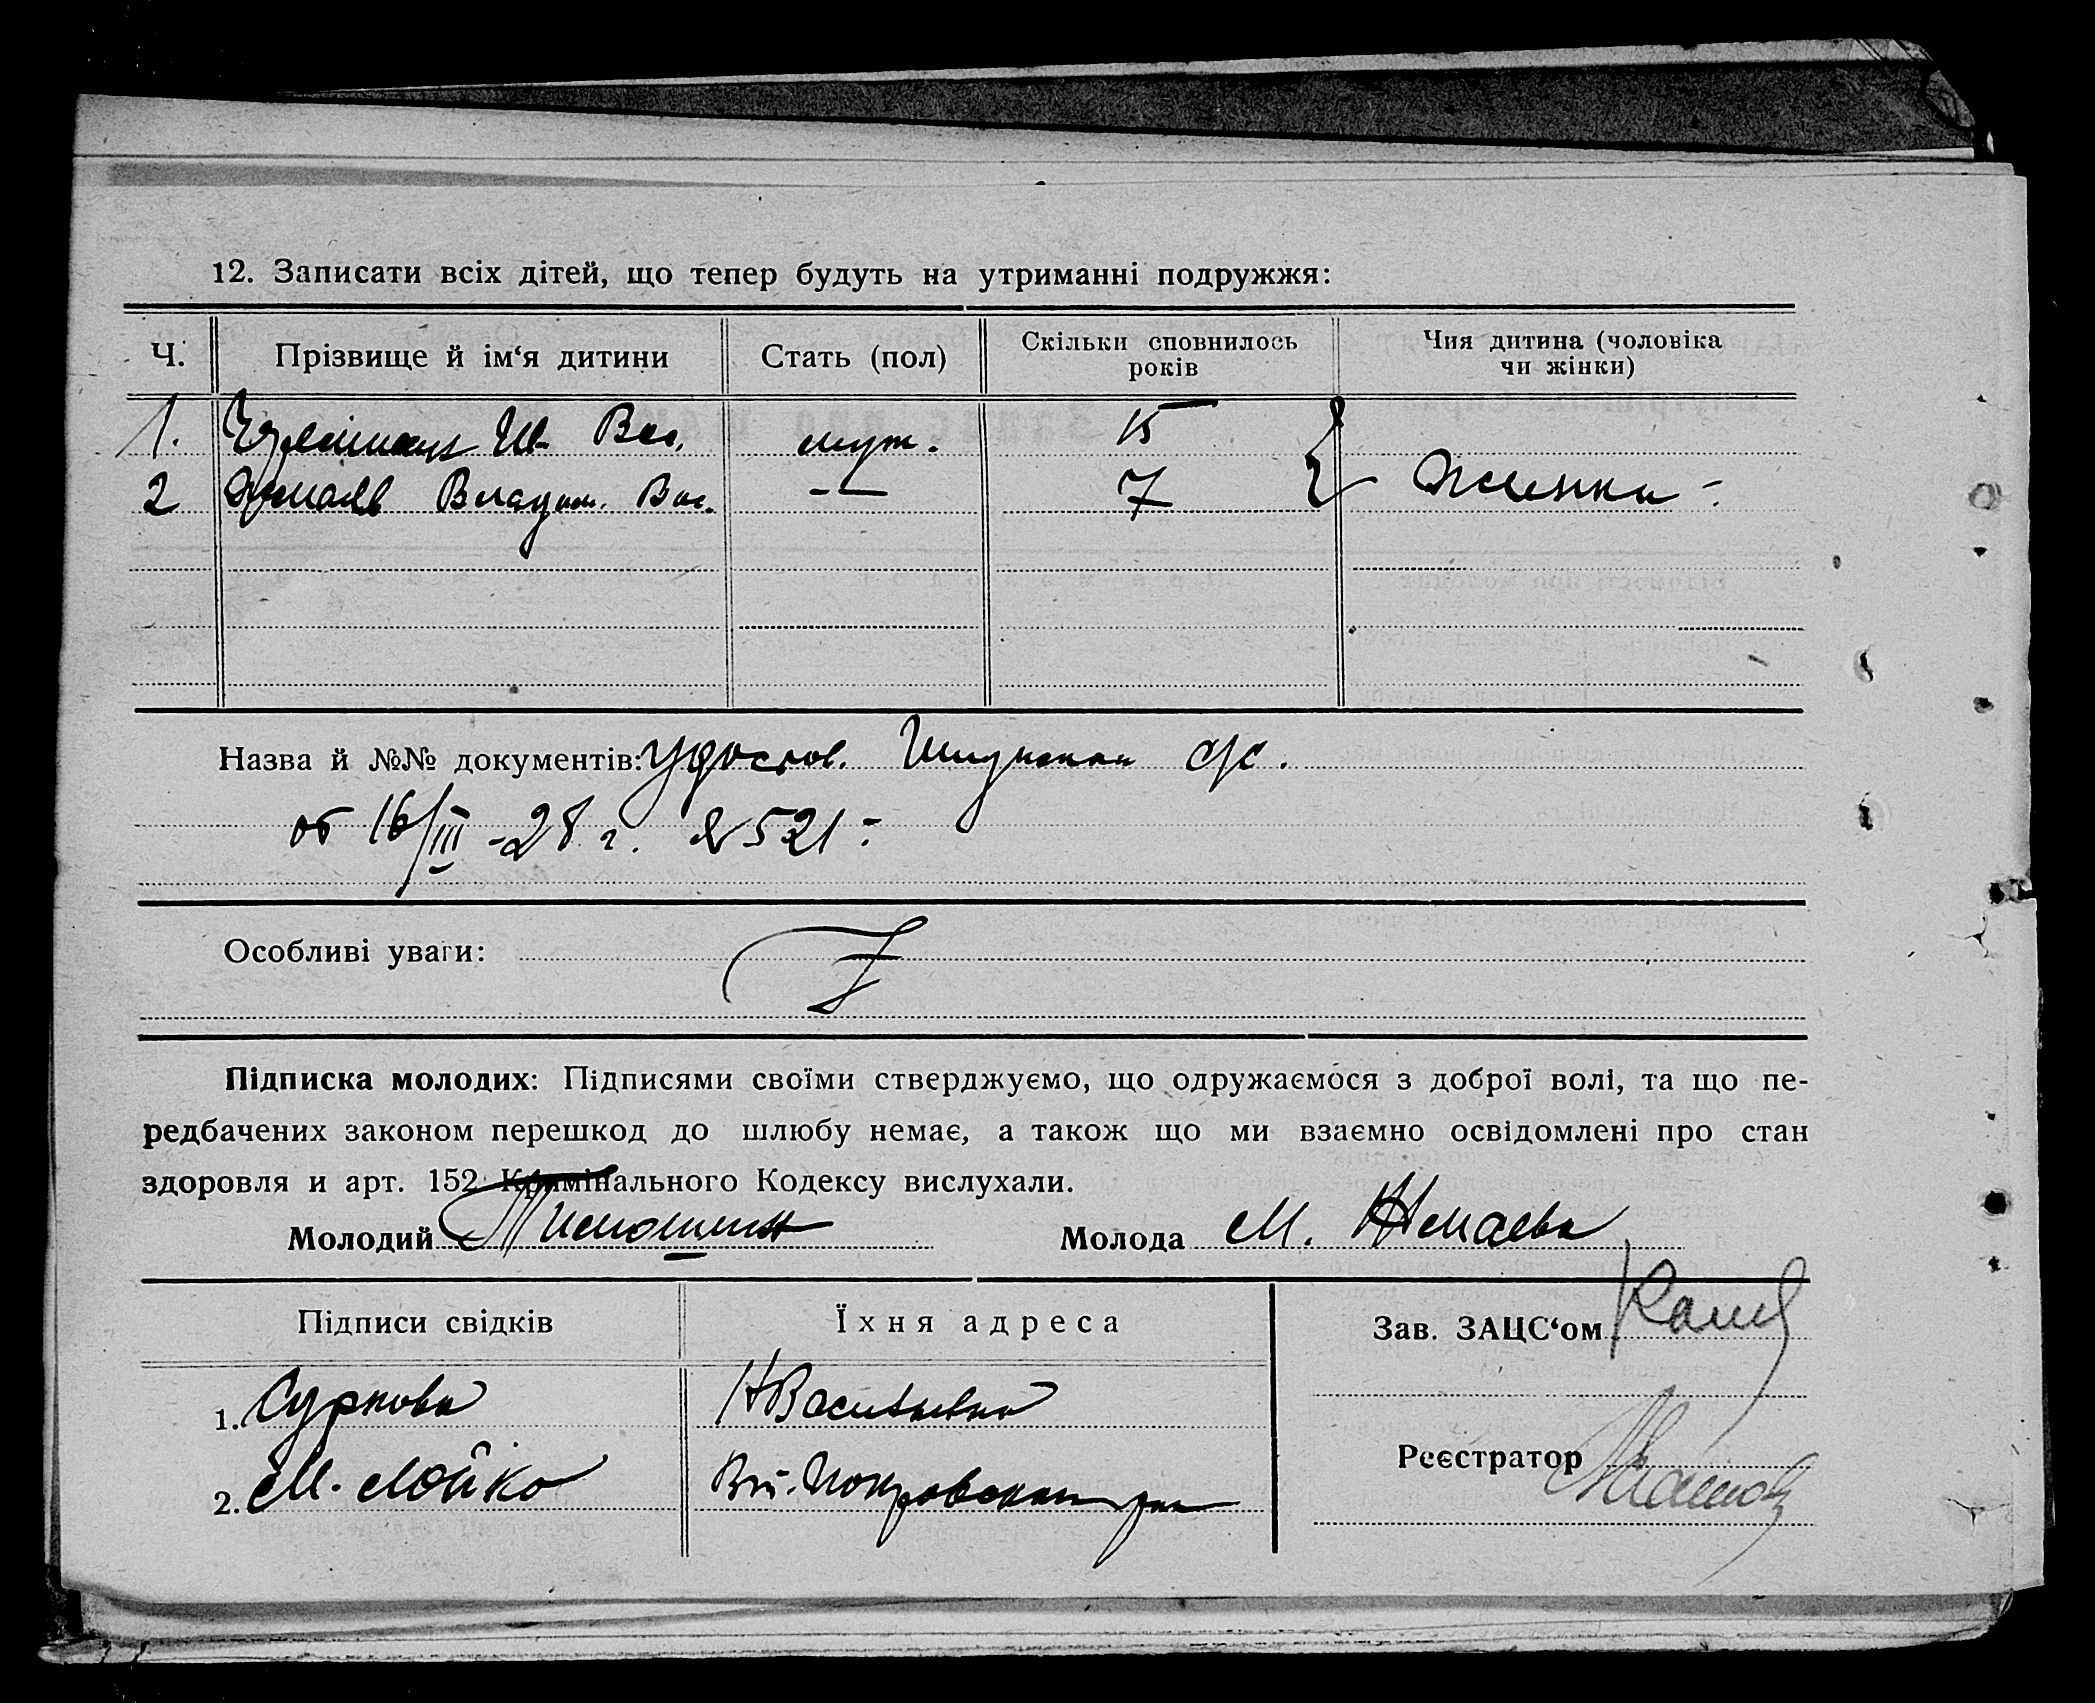 12. Записати всіх дітей, що тепер будуть на утриманні подружжя:
Ч. Прізвище й ім‘я дитини Стать (пол) Скільки сповнилось років Чия дитина (чоловіка чи жінки)
1. Вас. муж. 15
2 Владим. Вас. -"- 7 Жинки -
Назва й №№ документів: Удостов. с/с.
от 16/III -28 г. № 521 -
Особливі уваги: Z
Підписка молодих: Підписями своїми стверджуємо, що одружаємося з доброї волі, та що пе-
редбачених законом перешкод до шлюбу немає, а також що ми взаємно освідомлені про стан
здоровля и арт. 152 Кримінального Кодексу вислухали.
Молодий Молода М.
Підписи свідків Їхня адреса Зав. ЗАЦС‘ом
1. Суркова Н Васильевка
2. М. Мойко Вт. Покровская
Реєстратор